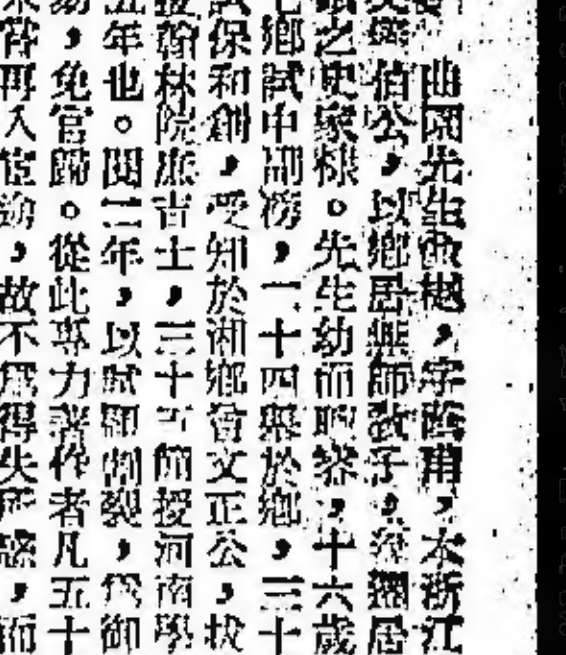 曲園先生俞樾,字蔭甫,本浙江
伯公,以鄉居無師教子,居
之史家。先生幼而,十六歲
鄉試中副榜,二十四舉於鄉,三十
試保和,受知於湘鄉曾文正公,拔
授翰林院庶吉士,三十五簡授河南學
五年也。閱二年,以試題割裂,為御
劾,免官歸。從此專力著作者凡五十
嘗再入宦途,故不為得失所,而